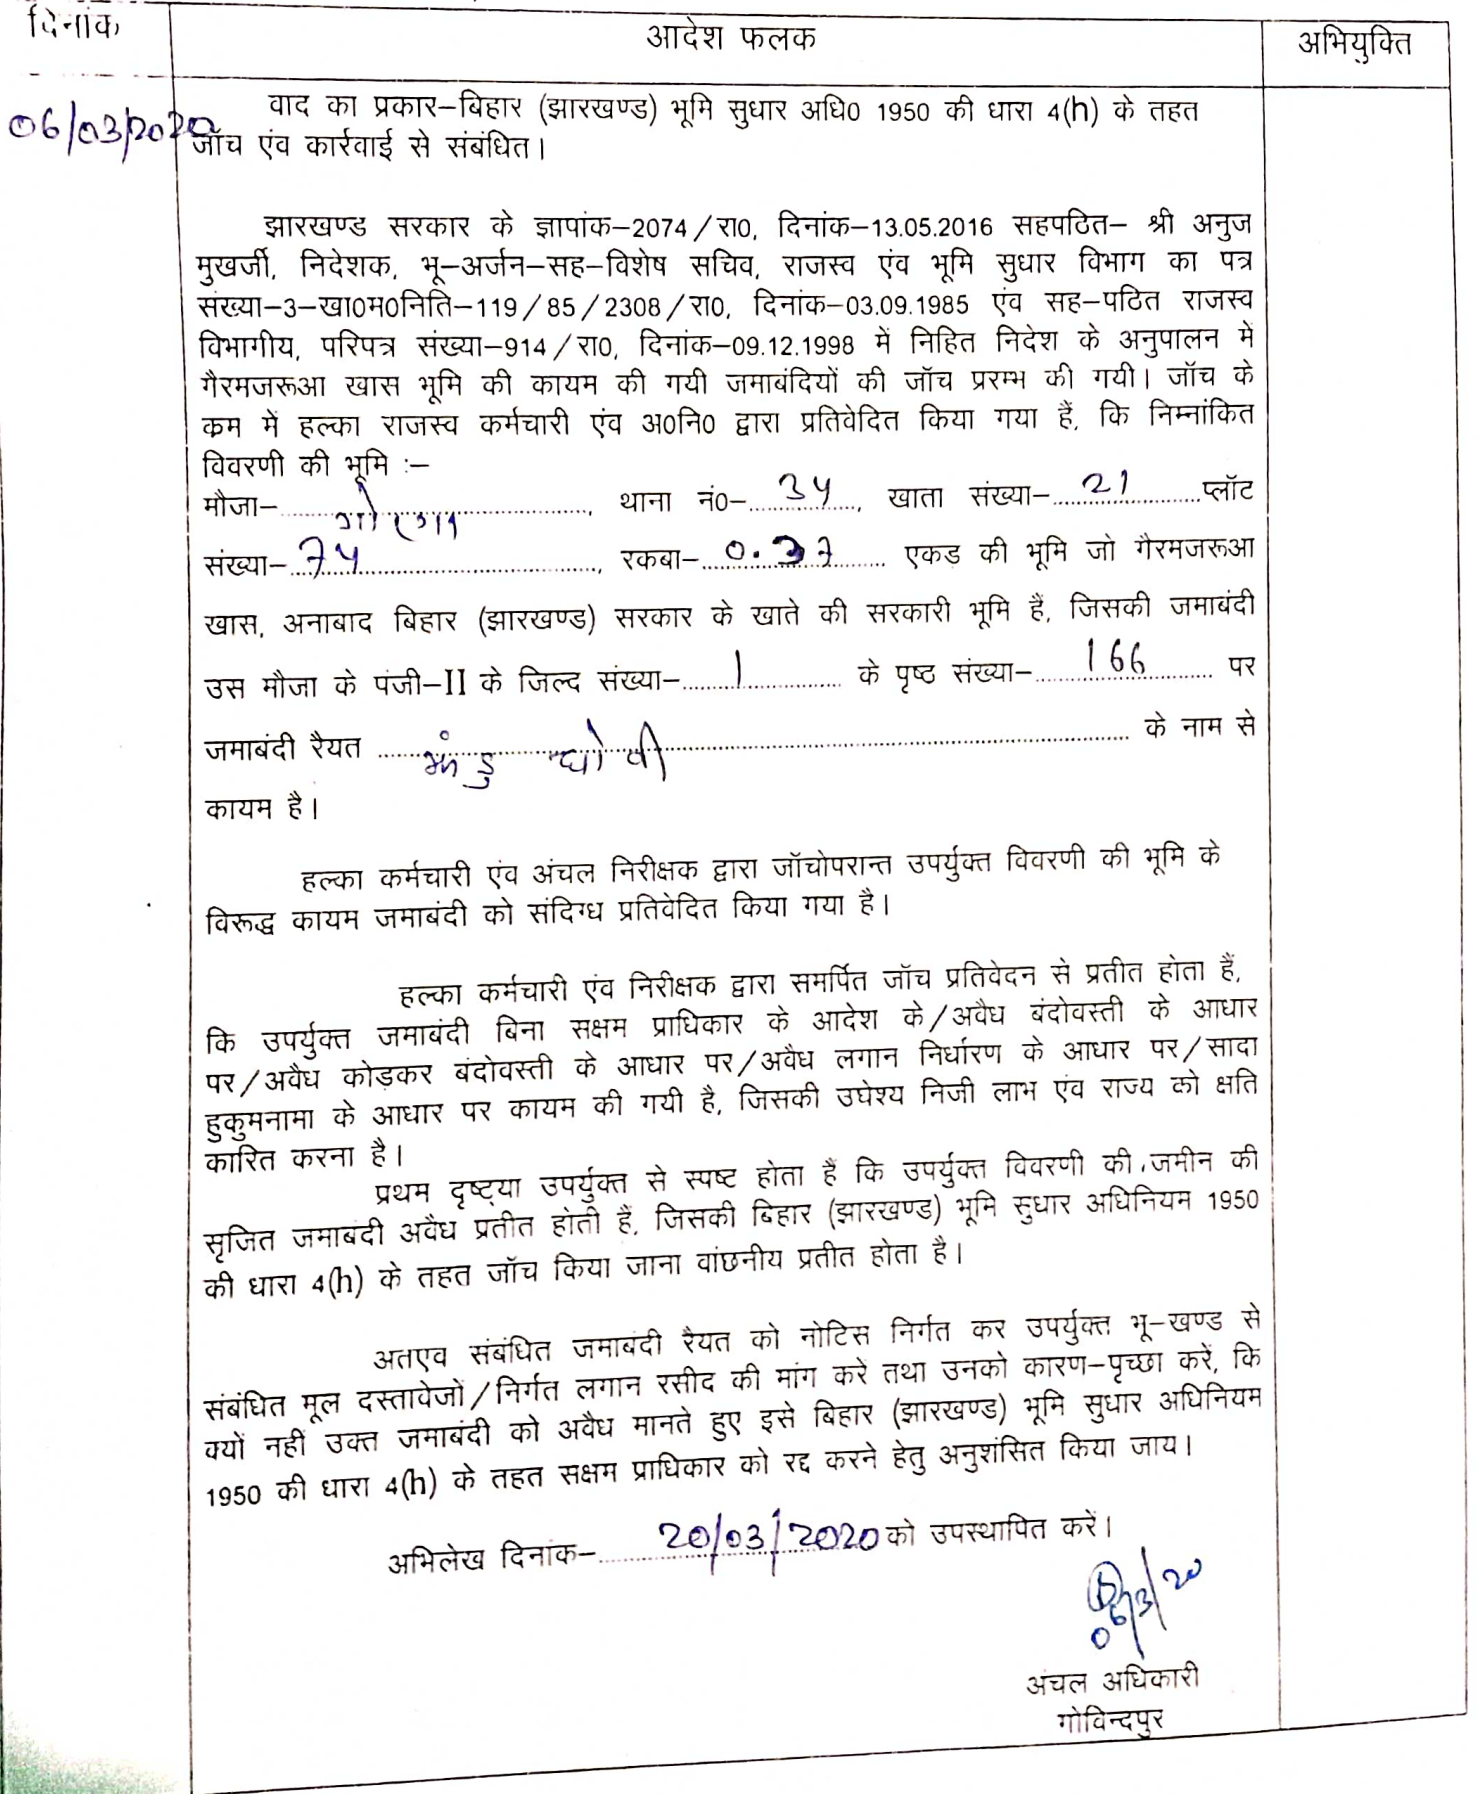 दिनांक
आदेश फलक
अभियुक्ति
06/03/2020
वाद का प्रकार–बिहार (झारखण्ड) भूमि सुधार अधि0 1950 की धारा 4(h) के तहत
जॉच एंव कार्रवाई से संबंधित।
झारखण्ड सरकार के ज्ञापांक–2074/रा0, दिनांक–13.05.2016 सहपठित– श्री अनुज
मुखर्जी, निदेशक, भू–अर्जन–सह–विशेष सचिव, राजस्व एंव भूमि सुधार विभाग का पत्र
संख्या–3–खा0म0निति–119/85/2308/रा0, दिनांक–03.09.1985 एंव सह–पठित राजस्व
विभागीय, परिपत्र संख्या–914/रा0, दिनांक–09.12.1998 में निहित निदेश के अनुपालन में
गैरमजरूआ खास भूमि की कायम की गयी जमाबंदियों की जॉच प्ररम्भ की गयी। जॉच के
क्रम में हल्का राजस्व कर्मचारी एंव अ0नि0 द्वारा प्रतिवेदित किया गया हैं, कि निम्नांकित
विवरणी की भूमि :–
मौजा– , थाना नं0– 34, खाता संख्या– 21 प्लॉट
संख्या– 74, रकबा– 0.37 एकड की भूमि जो गैरमजरूआ
खास, अनाबाद बिहार (झारखण्ड) सरकार के खाते की सरकारी भूमि हैं, जिसकी जमाबंदी
उस मौजा के पंजी–II के जिल्द संख्या– 1 के पृष्ठ संख्या– 166 पर
जमाबंदी रैयत झंडु धोबी के नाम से
कायम है।
हल्का कर्मचारी एंव अंचल निरीक्षक द्वारा जॉचोपरान्त उपर्युक्त विवरणी की भूमि के
विरूद्ध कायम जमाबंदी को संदिग्ध प्रतिवेदित किया गया है।
हल्का कर्मचारी एंव निरीक्षक द्वारा समर्पित जॉच प्रतिवेदन से प्रतीत होता हैं,
कि उपर्युक्त जमाबंदी बिना सक्षम प्राधिकार के आदेश के/अवैध बंदोवस्ती के आधार
पर/अवैध कोड़कर बंदोवस्ती के आधार पर/अवैध लगान निर्धारण के आधार पर/सादा
हुकुमनामा के आधार पर कायम की गयी है, जिसकी उघेश्य निजी लाभ एंव राज्य को क्षति
कारित करना है।
प्रथम दृष्ट्या उपर्युक्त से स्पष्ट होता हैं कि उपर्युक्त विवरणी की जमीन की
सृजित जमाबंदी अवैध प्रतीत होती हैं, जिसकी बिहार (झारखण्ड) भूमि सुधार अधिनियम 1950
की धारा 4(h) के तहत जॉच किया जाना वांछनीय प्रतीत होता है।
अतएव संबंधित जमाबंदी रैयत को नोटिस निर्गत कर उपर्युक्त भू–खण्ड से
संबंधित मूल दस्तावेजों/निर्गत लगान रसीद की मांग करें तथा उनको कारण–पृच्छा करें, कि
क्यों नहीं उक्त जमाबंदी को अवैध मानते हुए इसे बिहार (झारखण्ड) भूमि सुधार अधिनियम
1950 की धारा 4(h) के तहत सक्षम प्राधिकार को रद्द करने हेतु अनुशंसित किया जाय।
अभिलेख दिनांक– 20/03/2020 को उपस्थापित करें।
06/3/20
अंचल अधिकारी
गोविन्दपुर